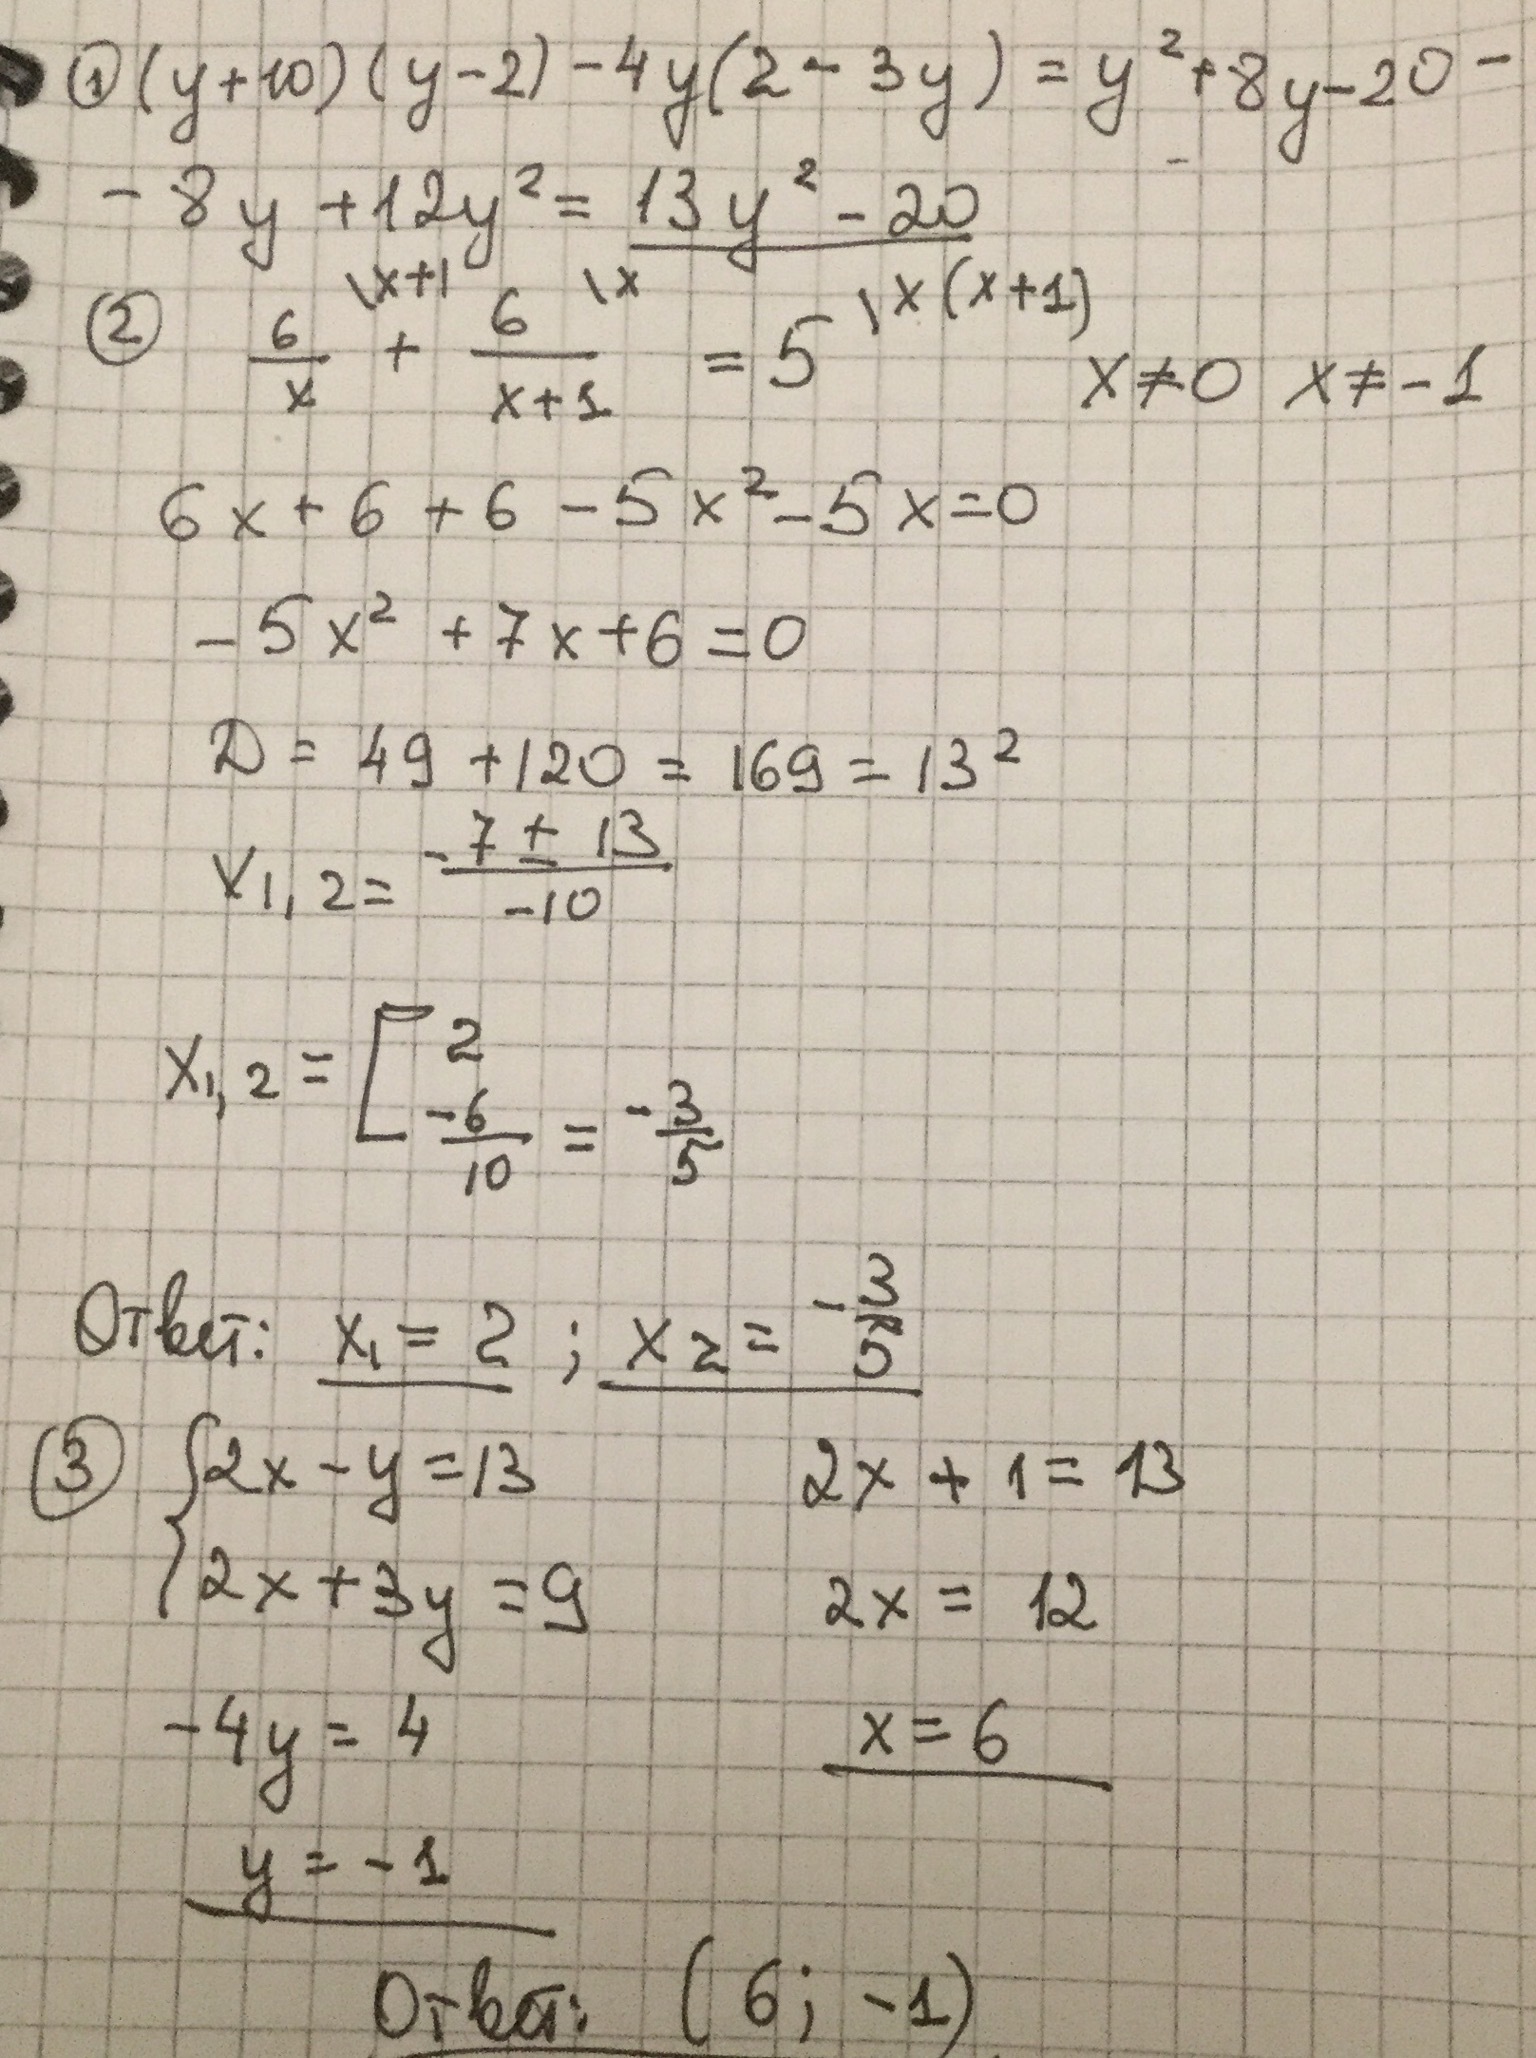 ① (y+10)(y-2)-4y(2-3y)=y²+8y-20-
-8y+12y²=13y²-20
② 6/x \x+1 + 6/(x+1) \x = 5 \x(x+1) x≠0 x≠-1
6x+6+6-5x²-5x=0
-5x²+7x+6=0
D=49+120=169=13²
x1,2=(-7±13)/-10
x1,2=[2
-6/10=-3/5
Ответ: x1=2; x2=-3/5
③ {2x-y=13 2x+1=13
2x+3y=9 2x=12
-4y=4 x=6
y=-1
Ответ: (6;-1)